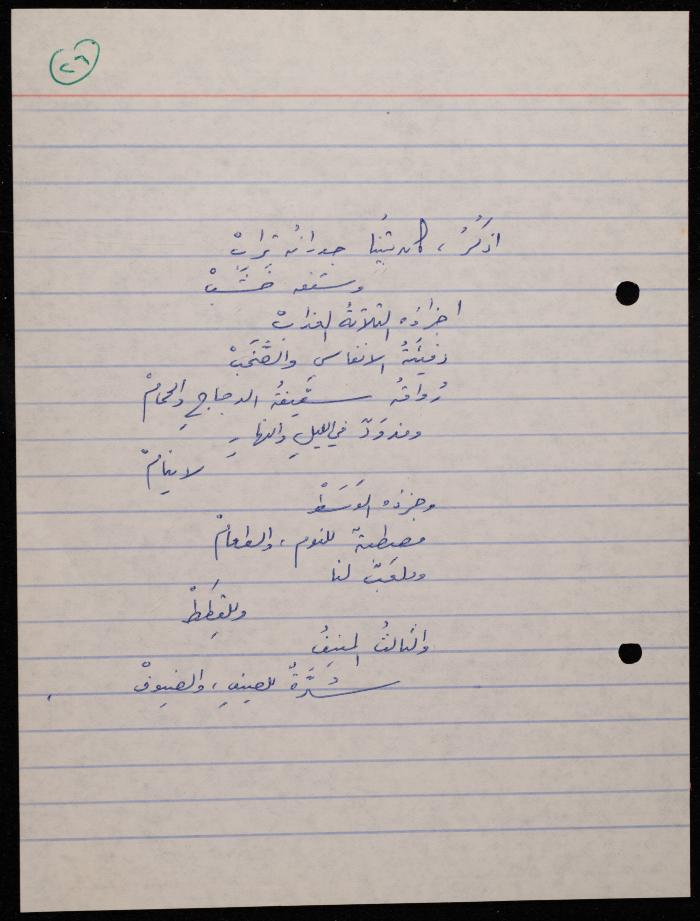 ٢٦
اذكُرُ، كان بَيْتُنا جدرانُه ترابْ
وسقفه خَشَبْ
اجزاؤه الثلاثةُ العِذابْ
دفيئةُ الانفاسِ والصَّخَبْ
رُواقُه سَقِيفةُ الدجاجِ والحَمامْ
ومذوَدٌ في الليلِ والنهارِ
لا ينامْ
وجزؤه الوَسَطْ
مصطبةٌ للنومِ، والطعامْ
وملعَبٌ لنا
وللقِطَطْ
والثالثُ المنيفُ
سُدَّةٌ للصيفِ، والضيوفْ